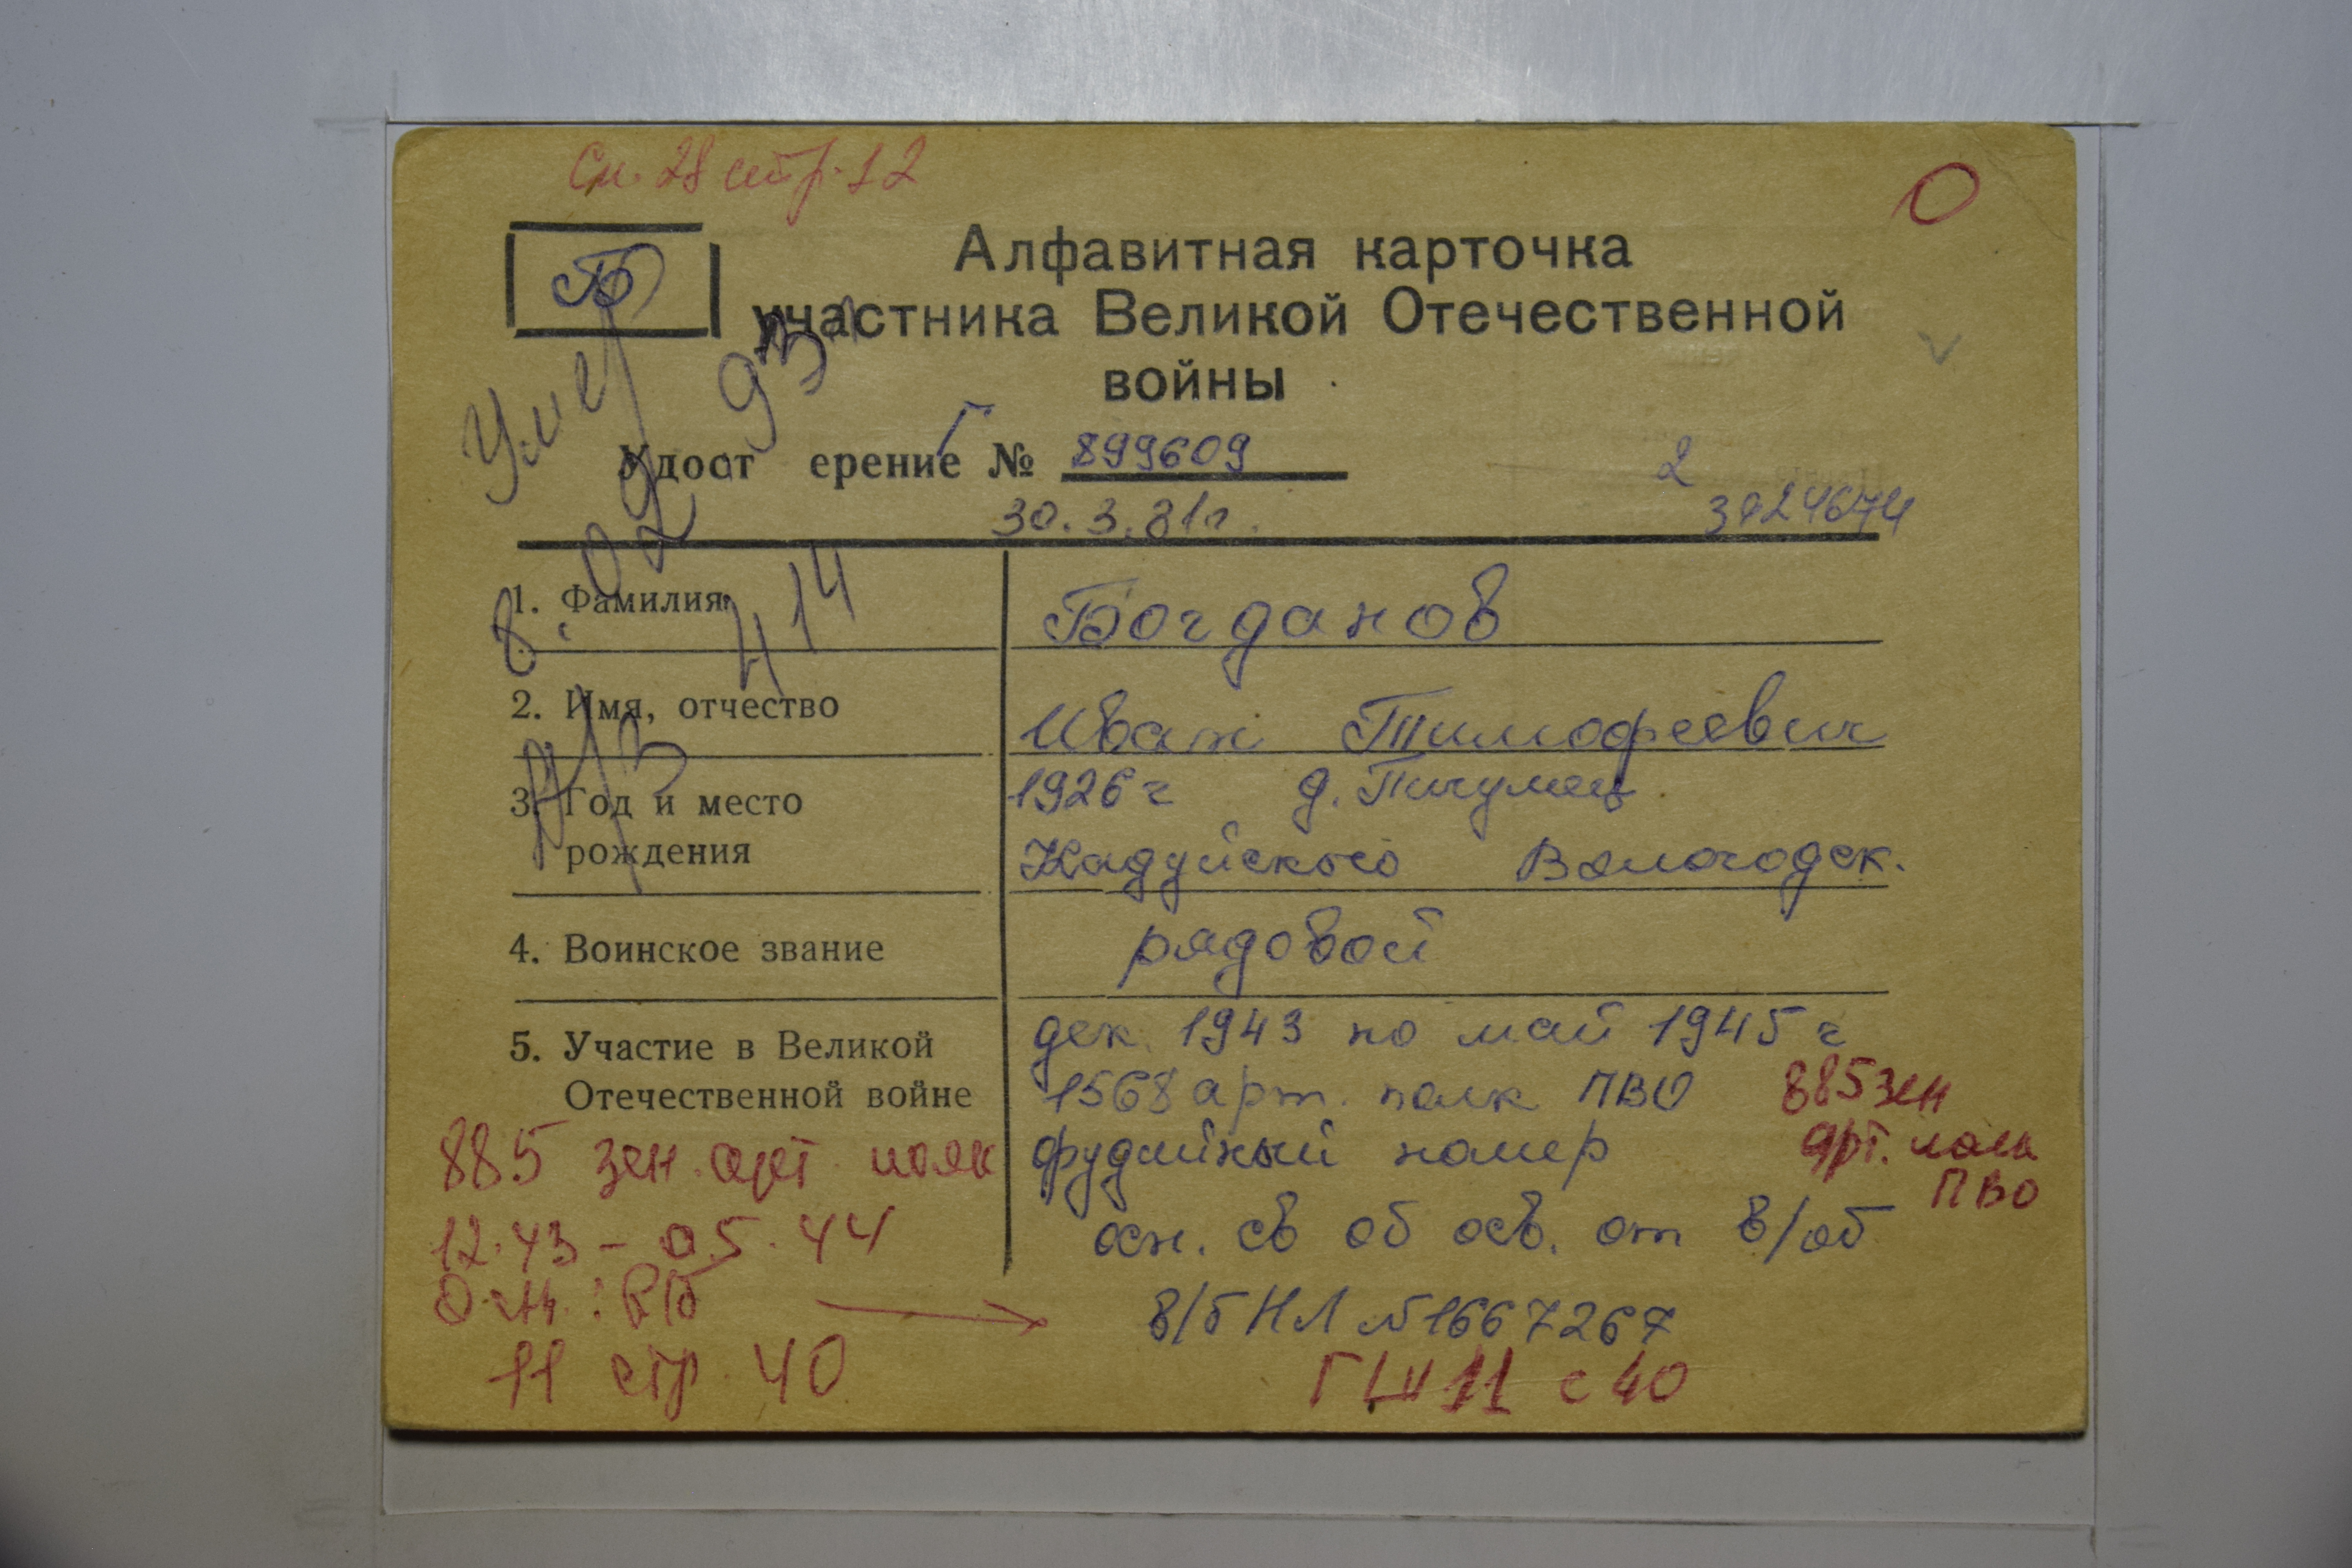 Сп. 28 стр. 12
О
Б
Алфавитная карточка
участника Великой Отечественной
войны
Умер
8.02.93
Удост ерение № 899609
30.3.81г.
2
1. Фамилия Богданов
414
2. Имя, отчество Иван Тимофеевич
3. Год и место рождения 1926 г д. Пичумец
Кадуйского Вологодск.
4. Воинское звание рядовой
5. Участие в Великой Отечественной войне дек. 1943 по май 1945 г
1568 арт. полк ПВО
885 зен
арт. полк
ПВО
орудийный номер
осн. св об осв. от в/об
в/б НЛ №1667267
885 зен. арт. полк
12.43 – 05.44
Осн.: В/б
11 стр. 40
ГШ 11 с 40